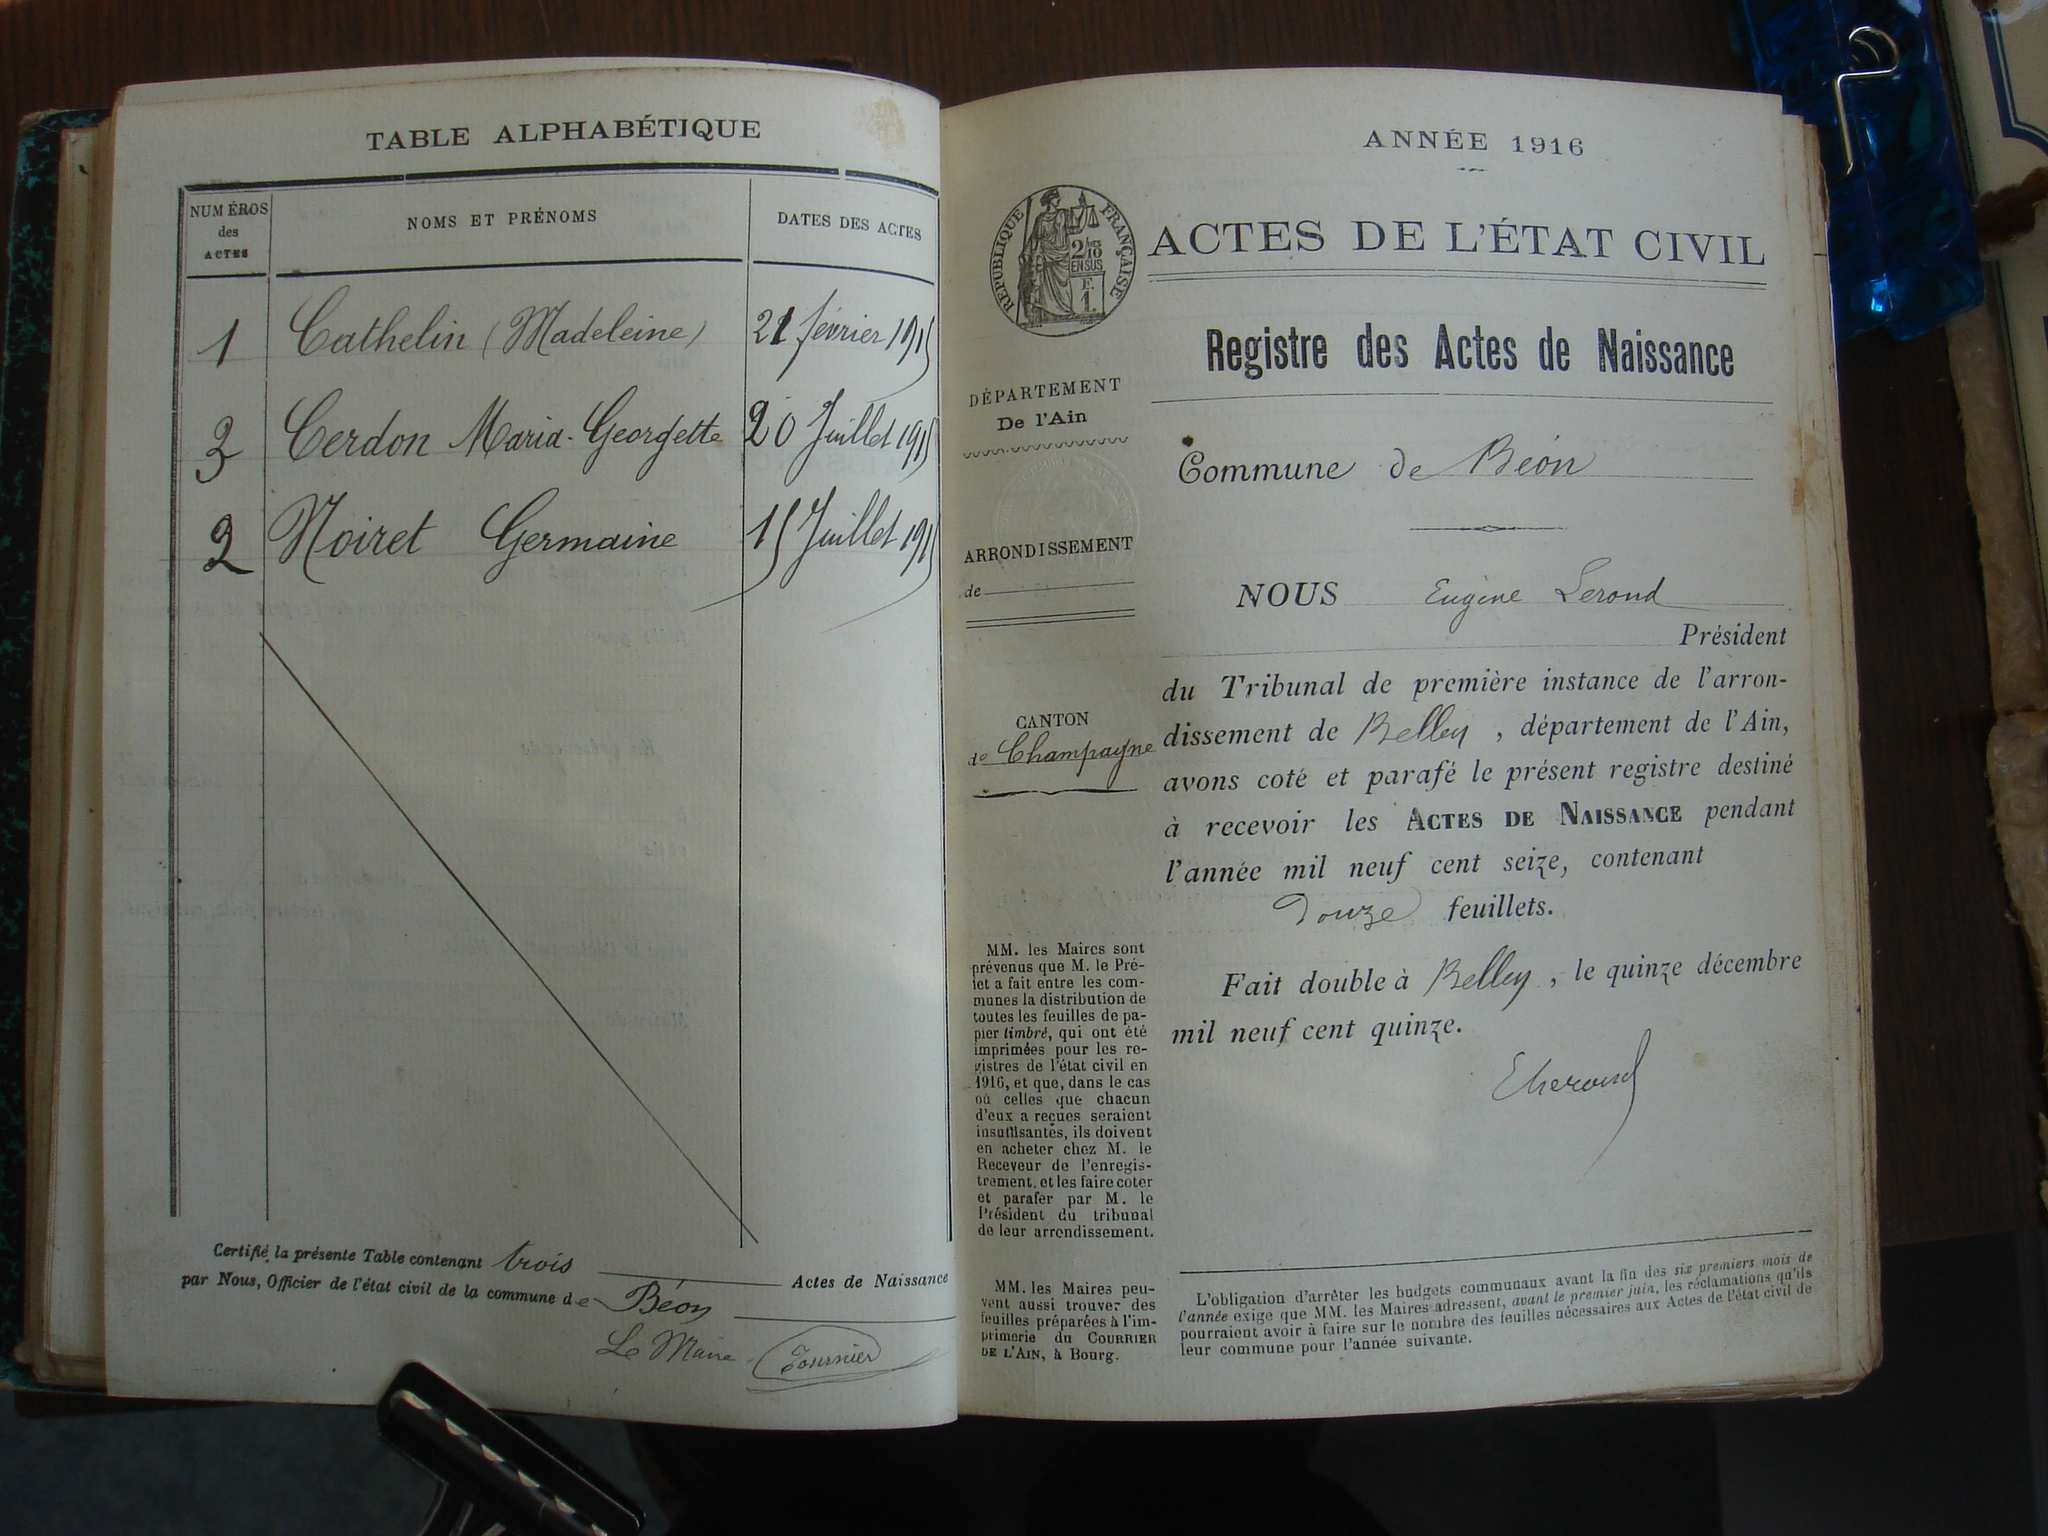 TABLE ALPHABÉTIQUE
NUMÉROS
des
ACTES
NOMS ET PRÉNOMS
DATES DES ACTES
1 Cathelin (Madeleine) 21 février 1915
3 Cerdon Maria-Georgette 20 Juillet 1915
2 Noiret Germaine 15 Juillet 1915
Certifié la présente Table contenant trois Actes de Naissance
par Nous, Officier de l'état civil de la commune de Béon
Le Maire
Tournier
ANNÉE 1916
RÉPUBLIQUE FRANÇAISE
2/10
EN SUS
F.
1.
ACTES DE L'ÉTAT CIVIL
Registre des Actes de Naissance
DÉPARTEMENT
De l'Ain
ARRONDISSEMENT
de
CANTON
de Champagne
MM. les Maires sont
prévenus que M. le Pré-
fet a fait entre les com-
munes la distribution de
toutes les feuilles de pa-
pier timbré, qui ont été
imprimées pour les re-
gistres de l'état civil en
1916, et que, dans le cas
où celles que chacun
d'eux a reçues seraient
insuffisantes, ils doivent
en acheter chez M. le
Receveur de l'enregis-
trement, et les faire coter
et parafer par M. le
Président du tribunal
de leur arrondissement.
MM. les Maires peu-
vent aussi trouver des
feuilles préparées à l'im-
primerie du COURRIER
DE L'AIN, à Bourg.
Commune de Béon
NOUS Eugène Lerond
Président
du Tribunal de première instance de l'arron-
dissement de Belley, département de l'Ain,
avons coté et parafé le présent registre destiné
à recevoir les ACTES DE NAISSANCE pendant
l'année mil neuf cent seize, contenant
Douze feuillets.
Fait double à Belley, le quinze décembre
mil neuf cent quinze.
L'obligation d'arrêter les budgets communaux avant la fin des six premiers mois de
l'année exige que MM. les Maires adressent, avant le premier juin, les réclamations qu'ils
pourraient avoir à faire sur le nombre des feuilles nécessaires aux Actes de l'état civil de
leur commune pour l'année suivante.